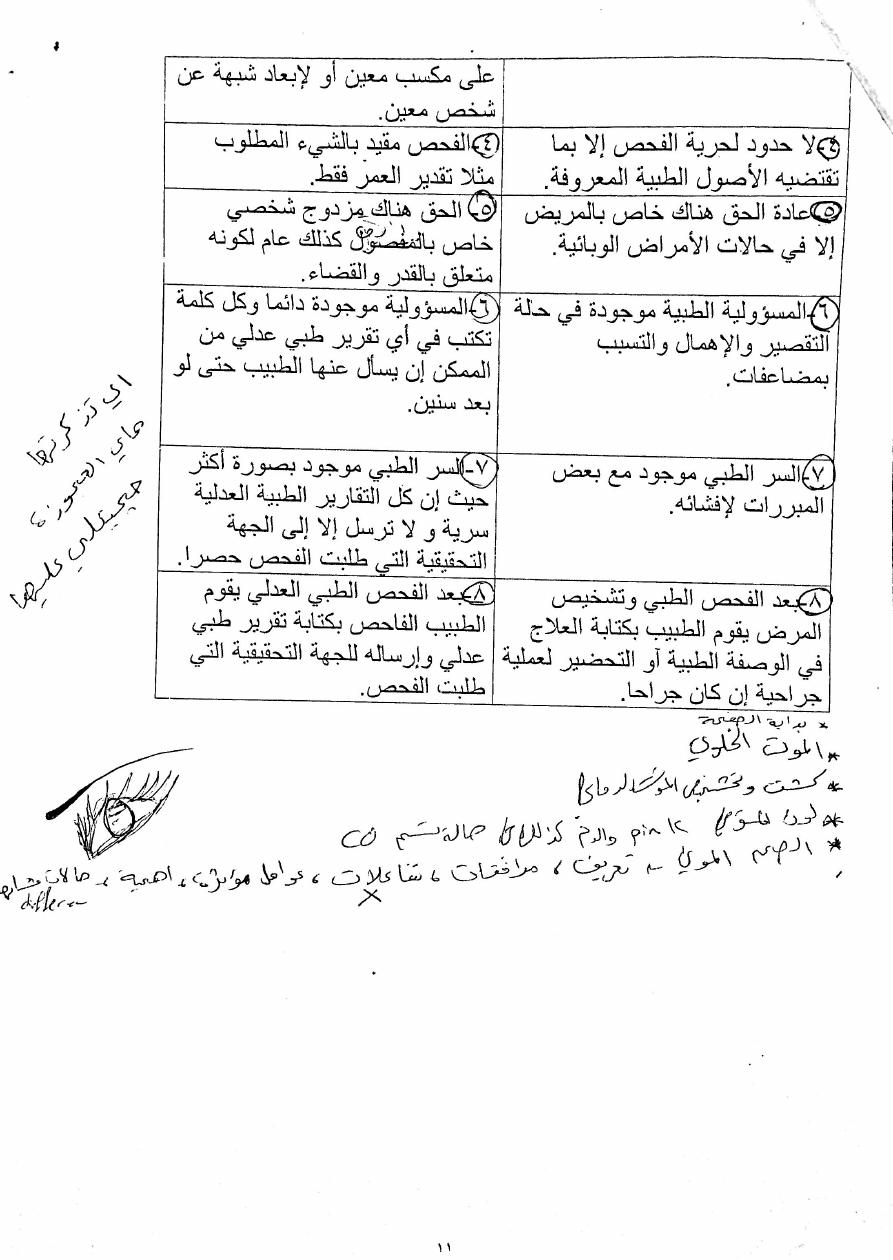 على مكسب معين أو لإبعاد شبهة عن
شخص معين.
٤- لا حدود لحرية الفحص إلا بما
تقتضيه الأصول الطبية المعروفة.
٤- الفحص مقيد بالشيء المطلوب
مثلا تقدير العمر فقط.
٥- عادة الحق هناك خاص بالمريض
إلا في حالات الأمراض الوبائية.
٥- الحق هناك مزدوج شخصي
خاص كذلك عام لكونه
متعلق بالقدر والقضاء.
٦- المسؤولية الطبية موجودة في حالة
التقصير والإهمال والتسبب
بمضاعفات.
٦- المسؤولية موجودة دائما وكل كلمة
تكتب في أي تقرير طبي عدلي من
الممكن إن يسأل عنها الطبيب حتى لو
بعد سنين.
٧- السر الطبي موجود مع بعض
المبررات لإفشائه.
٧- السر الطبي موجود بصورة أكثر
حيث إن كل التقارير الطبية العدلية
سرية و لا ترسل إلا إلى الجهة
التحقيقية التي طلبت الفحص حصرا.
٨- بعد الفحص الطبي وتشخيص
المرض يقوم الطبيب بكتابة العلاج
في الوصفة الطبية أو التحضير لعملية
جراحية إن كان جراحا.
٨- بعد الفحص الطبي العدلي يقوم
الطبيب الفاحص بكتابة تقرير طبي
عدلي وإرساله للجهة التحقيقية التي
طلبت الفحص.
* بداية الصفحة
* الموت الخلوي
* كشف وتشخيص الموت الدماغي
* pink والدم كذلك حالة تسمم
* الموتي - تعريف، مرافقات، تفاعلات، عوامل مؤثرة، اهمية، حالات
١١